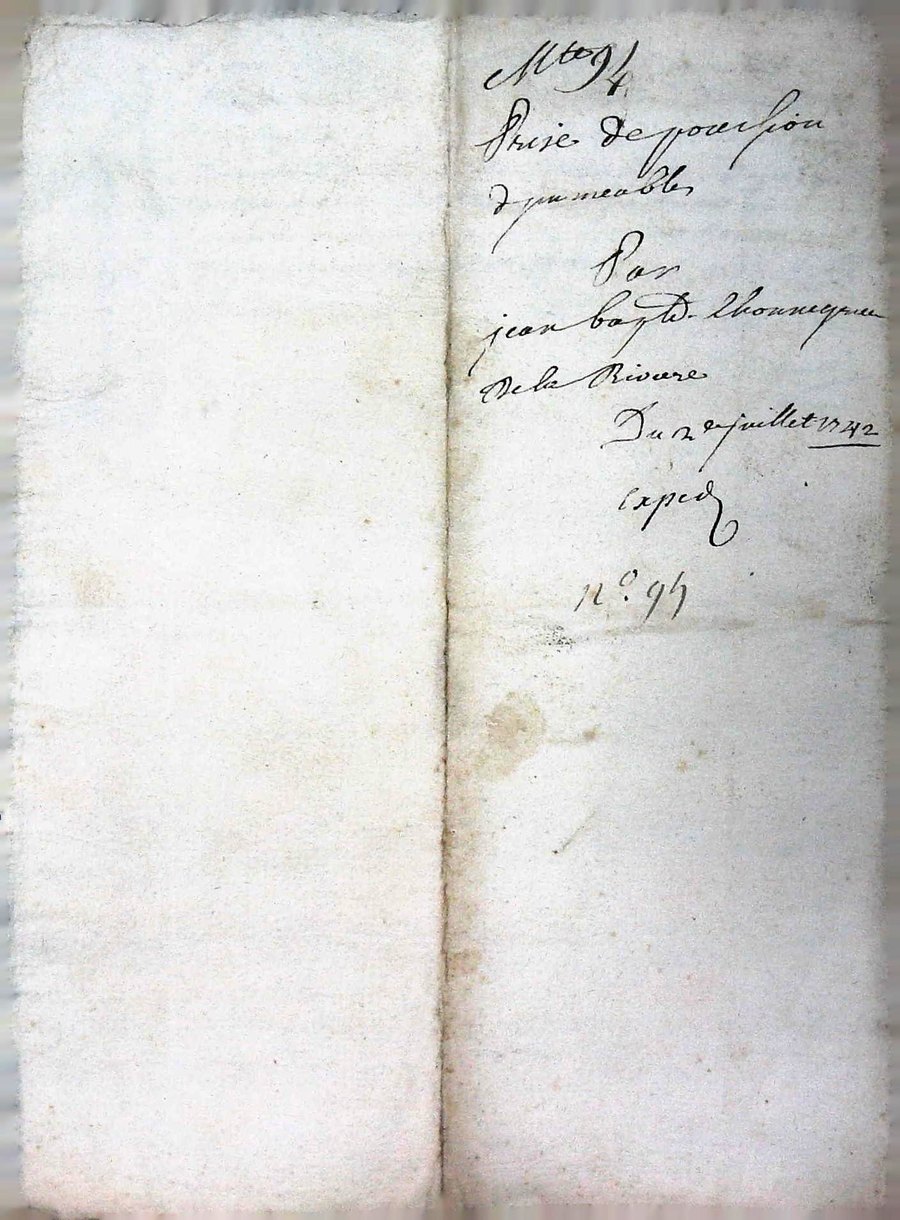 Mte 94
Prise de possession
d'jmmeubles
Par
jean bapte. Lhonneyreu
De la Riviere
Du 2 de juillet 1742
exped
n°. 94